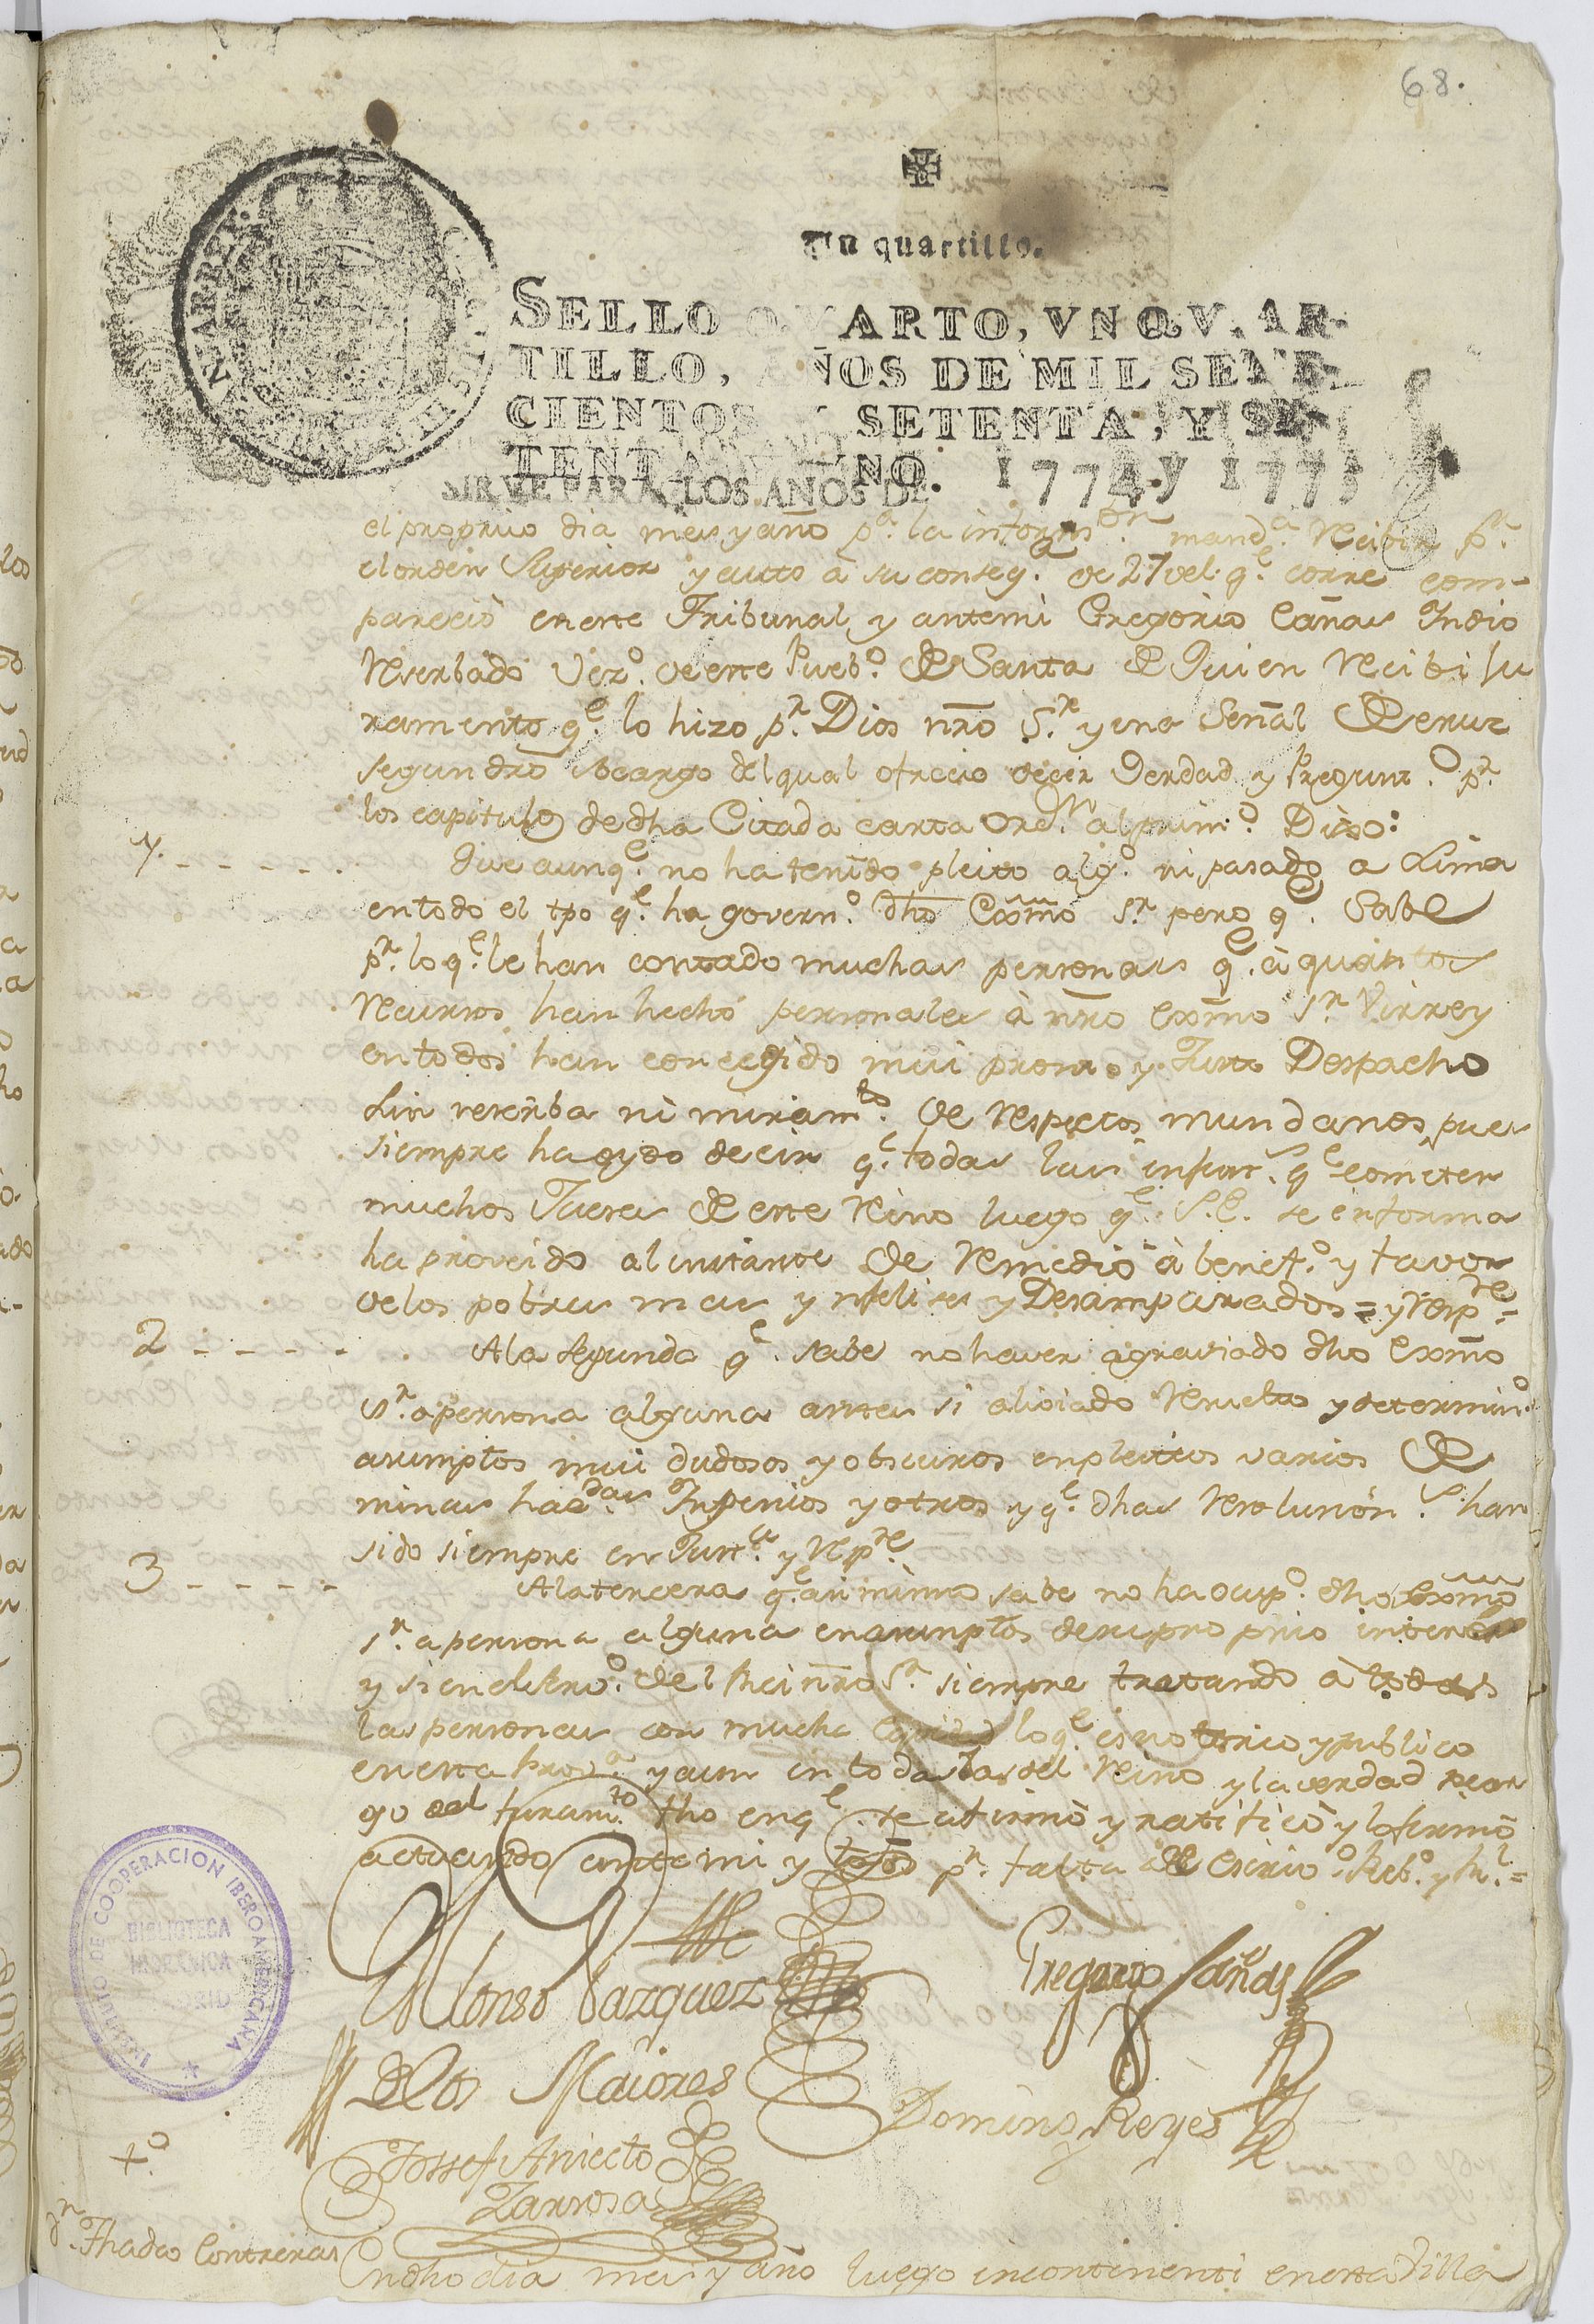 68.
Un quartillo.
SELLO QVARTO, VN QVAR-
TILLO, AÑOS DE MIL SETE-
CIENTOS Y SETENTA, Y SE-
TENTA Y VNO. 1774 y 1775
SIRVE PARA LOS AÑOS DE
el proprio dia mes y año pa. la informon. mandda. Recibir pr.
el orden Superior y auto à su conseqa. de 27 del qe. corre com-
pareciò en este Tribunal y ante mi Gregorio Cañas Indio
Reserbado Vezo. de este Puebo. de Santa de Quien Recibi Ju
ramento qe. lo hizo pr. Dios nro Sr. y una Señal de cruz
segun dro so cargo del qual ofrecio decir Verdad y Pregunto. pr.
los capitulos de dha Citada carta Ordn. al primo. Dixo:
1. - - - - - Que aunqe. no ha tenido pleito algo. ni pasado a Lima
en todo el tpo qe. ha governo. dho Exmo Sr. pero qe. Sabe
pr. lo qe. le han contado muchas personas qe. à quantos
Recursos han hecho personales à nro Exmo Sr. Virrey
en todos han consegido mui pronto y Justo Despacho
sin reserba ni miriamto. de Respectos mundanos, pues
siempre ha oydo decir qe. todas las injusts. qe. cometen
muchos Jueses de este Reino luego qe. S.E. se informa
ha proveido al instante de Remedio à benefo. y favor
de los pobres mas ynfelises y Desamparados = y Respde. =
2 - - - - - A la segunda qe. sabe no haver agraviado dho Exmo
Sr. a persona alguna antes si aliviado Resuelto y determino.
asumptos mui dudosos y obscuros en pleitos varios de
minas hacdas. Ingenios y otros y qe. dhas Resolusions. han
sido siempre en Justa. y Respde.
3 - - - - - A la tercera qe. asi mismo sabe no ha ocupo. dho Exmo
Sr. a persona alguna en asumptos de su proprio interes
y si en el servo. del Rei nro Sr. siempre tratando a todas
las personas con mucha Equidad lo qe. es notorio y publico
en esta Prova. y aun en todas las del Reino y la verdad so car
go del Juramto. fho en qe. se afirmò y ratificò y lo firmò
actuando ante mi y tgos pr. falta de Escrivo. Pubo. y Rl. =
Alonso Vazquez
Gregorio Cañas
de los Maiores
Domingo Reyes
to.
Jossef Aniceto
Larrosa
dn. Thadeo Contreras
En dho dia mes y año luego incontinenti en esta Villa
INSTITUTO DE COOPERACION IBEROAMERICANA
BIBLIOTECA
HISPANICA
MADRID